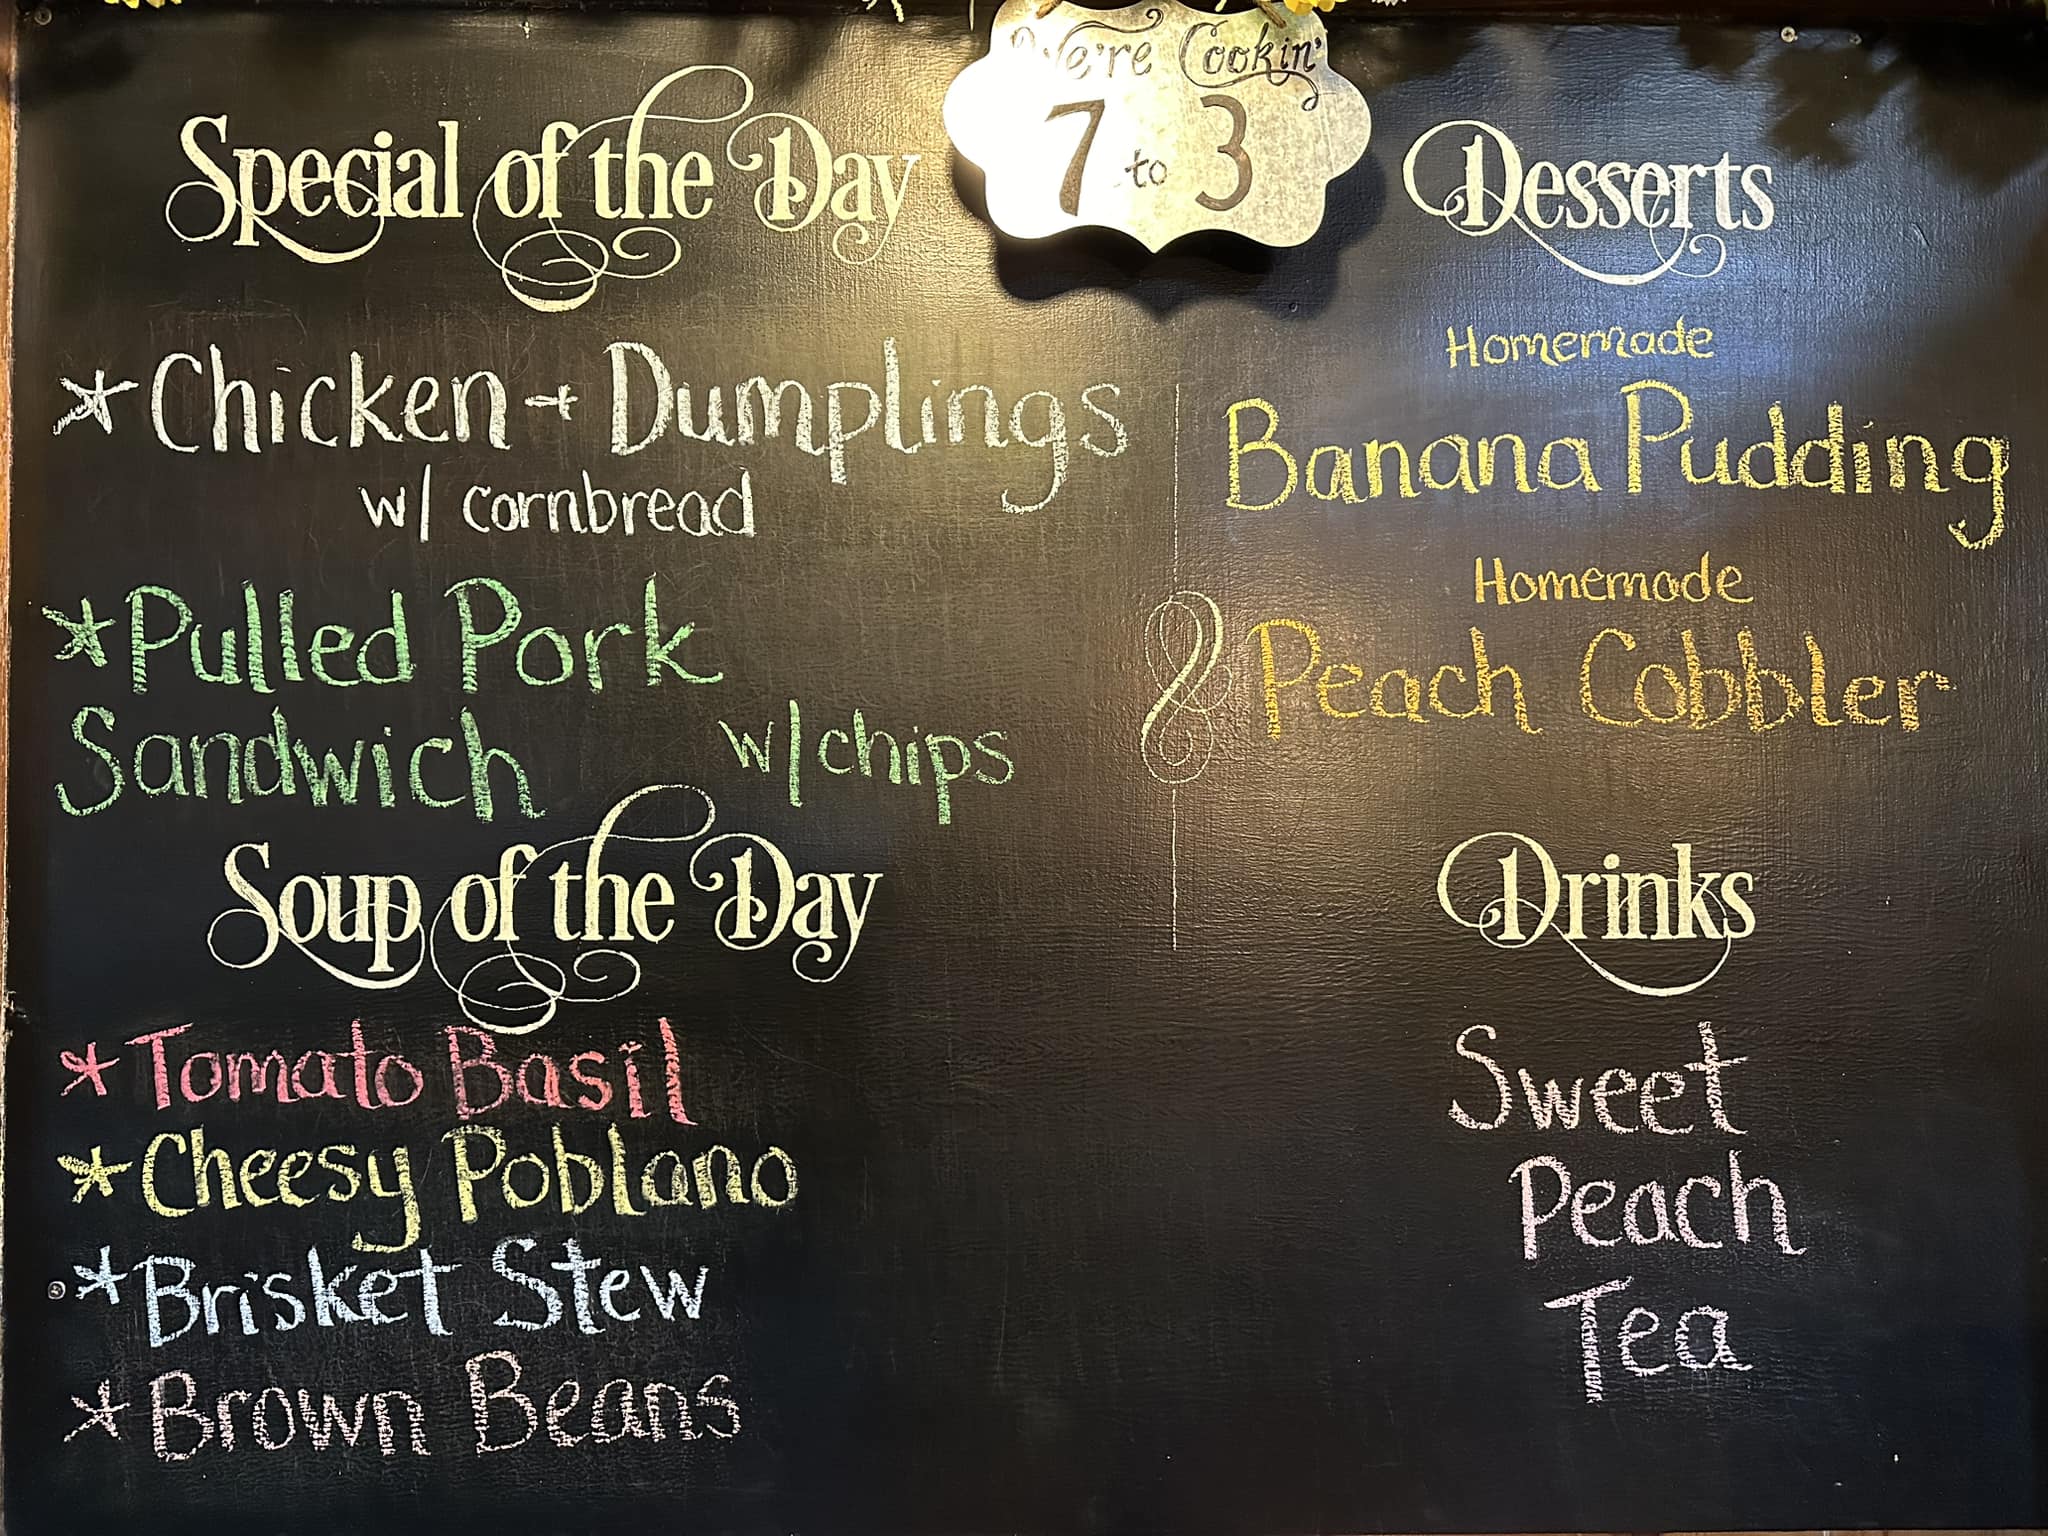 We're Cookin'
7 to 3
Special of the Day
*Chicken + Dumplings
w/ cornbread
*Pulled Pork
Sandwich w/chips
Soup of the Day
*Tomato Basil
*Cheesy Poblano
*Brisket Stew
*Brown Beans
Desserts
Homemade
Banana Pudding
Homemade
Peach Cobbler
Drinks
Sweet
Peach
Tea